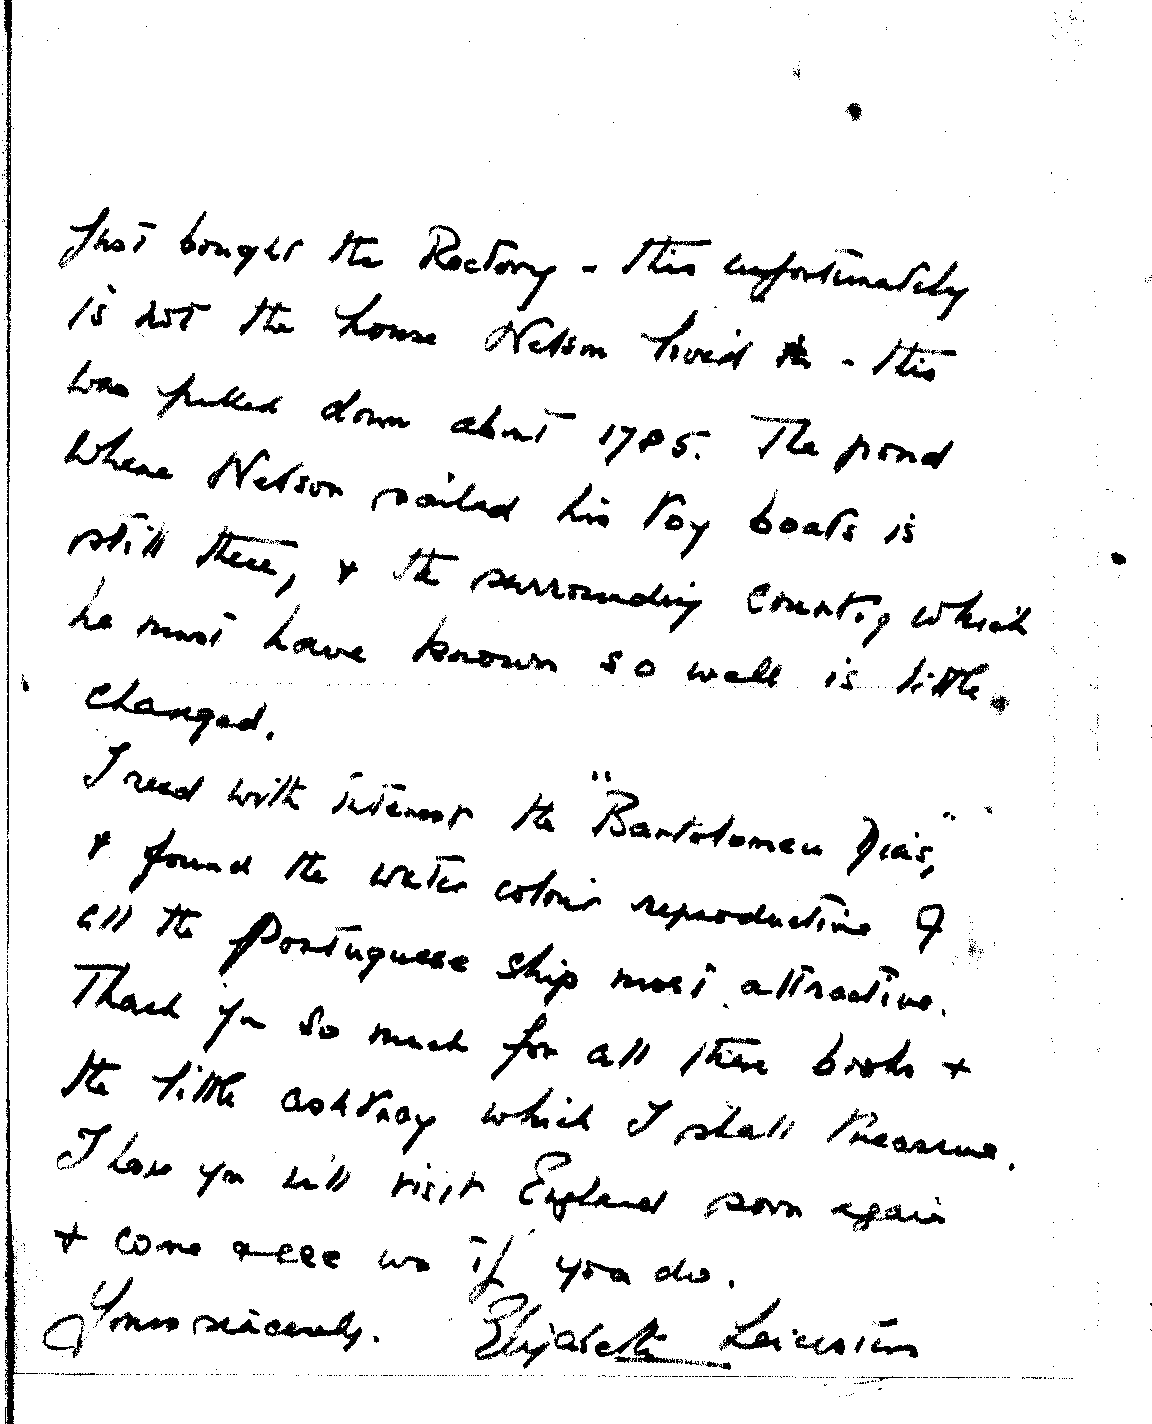 Just bought the Rectory - this unfortunately
is not the house Nelson lived in - this
was pulled down about 1785. The pond
where Nelson sailed his toy boats is
still there, & the surrounding country which
he must have known so well is little
changed.
I read with interest the "Bartolomeu Dias,"
& found the water colour reproductions of
all the Portuguese ship most attractive.
Thank you so much for all these books &
the little ashtray which I shall treasure.
I hope you will visit England soon again
& come & see us if you do.
Yours sincerely. Elizabeth Leicester